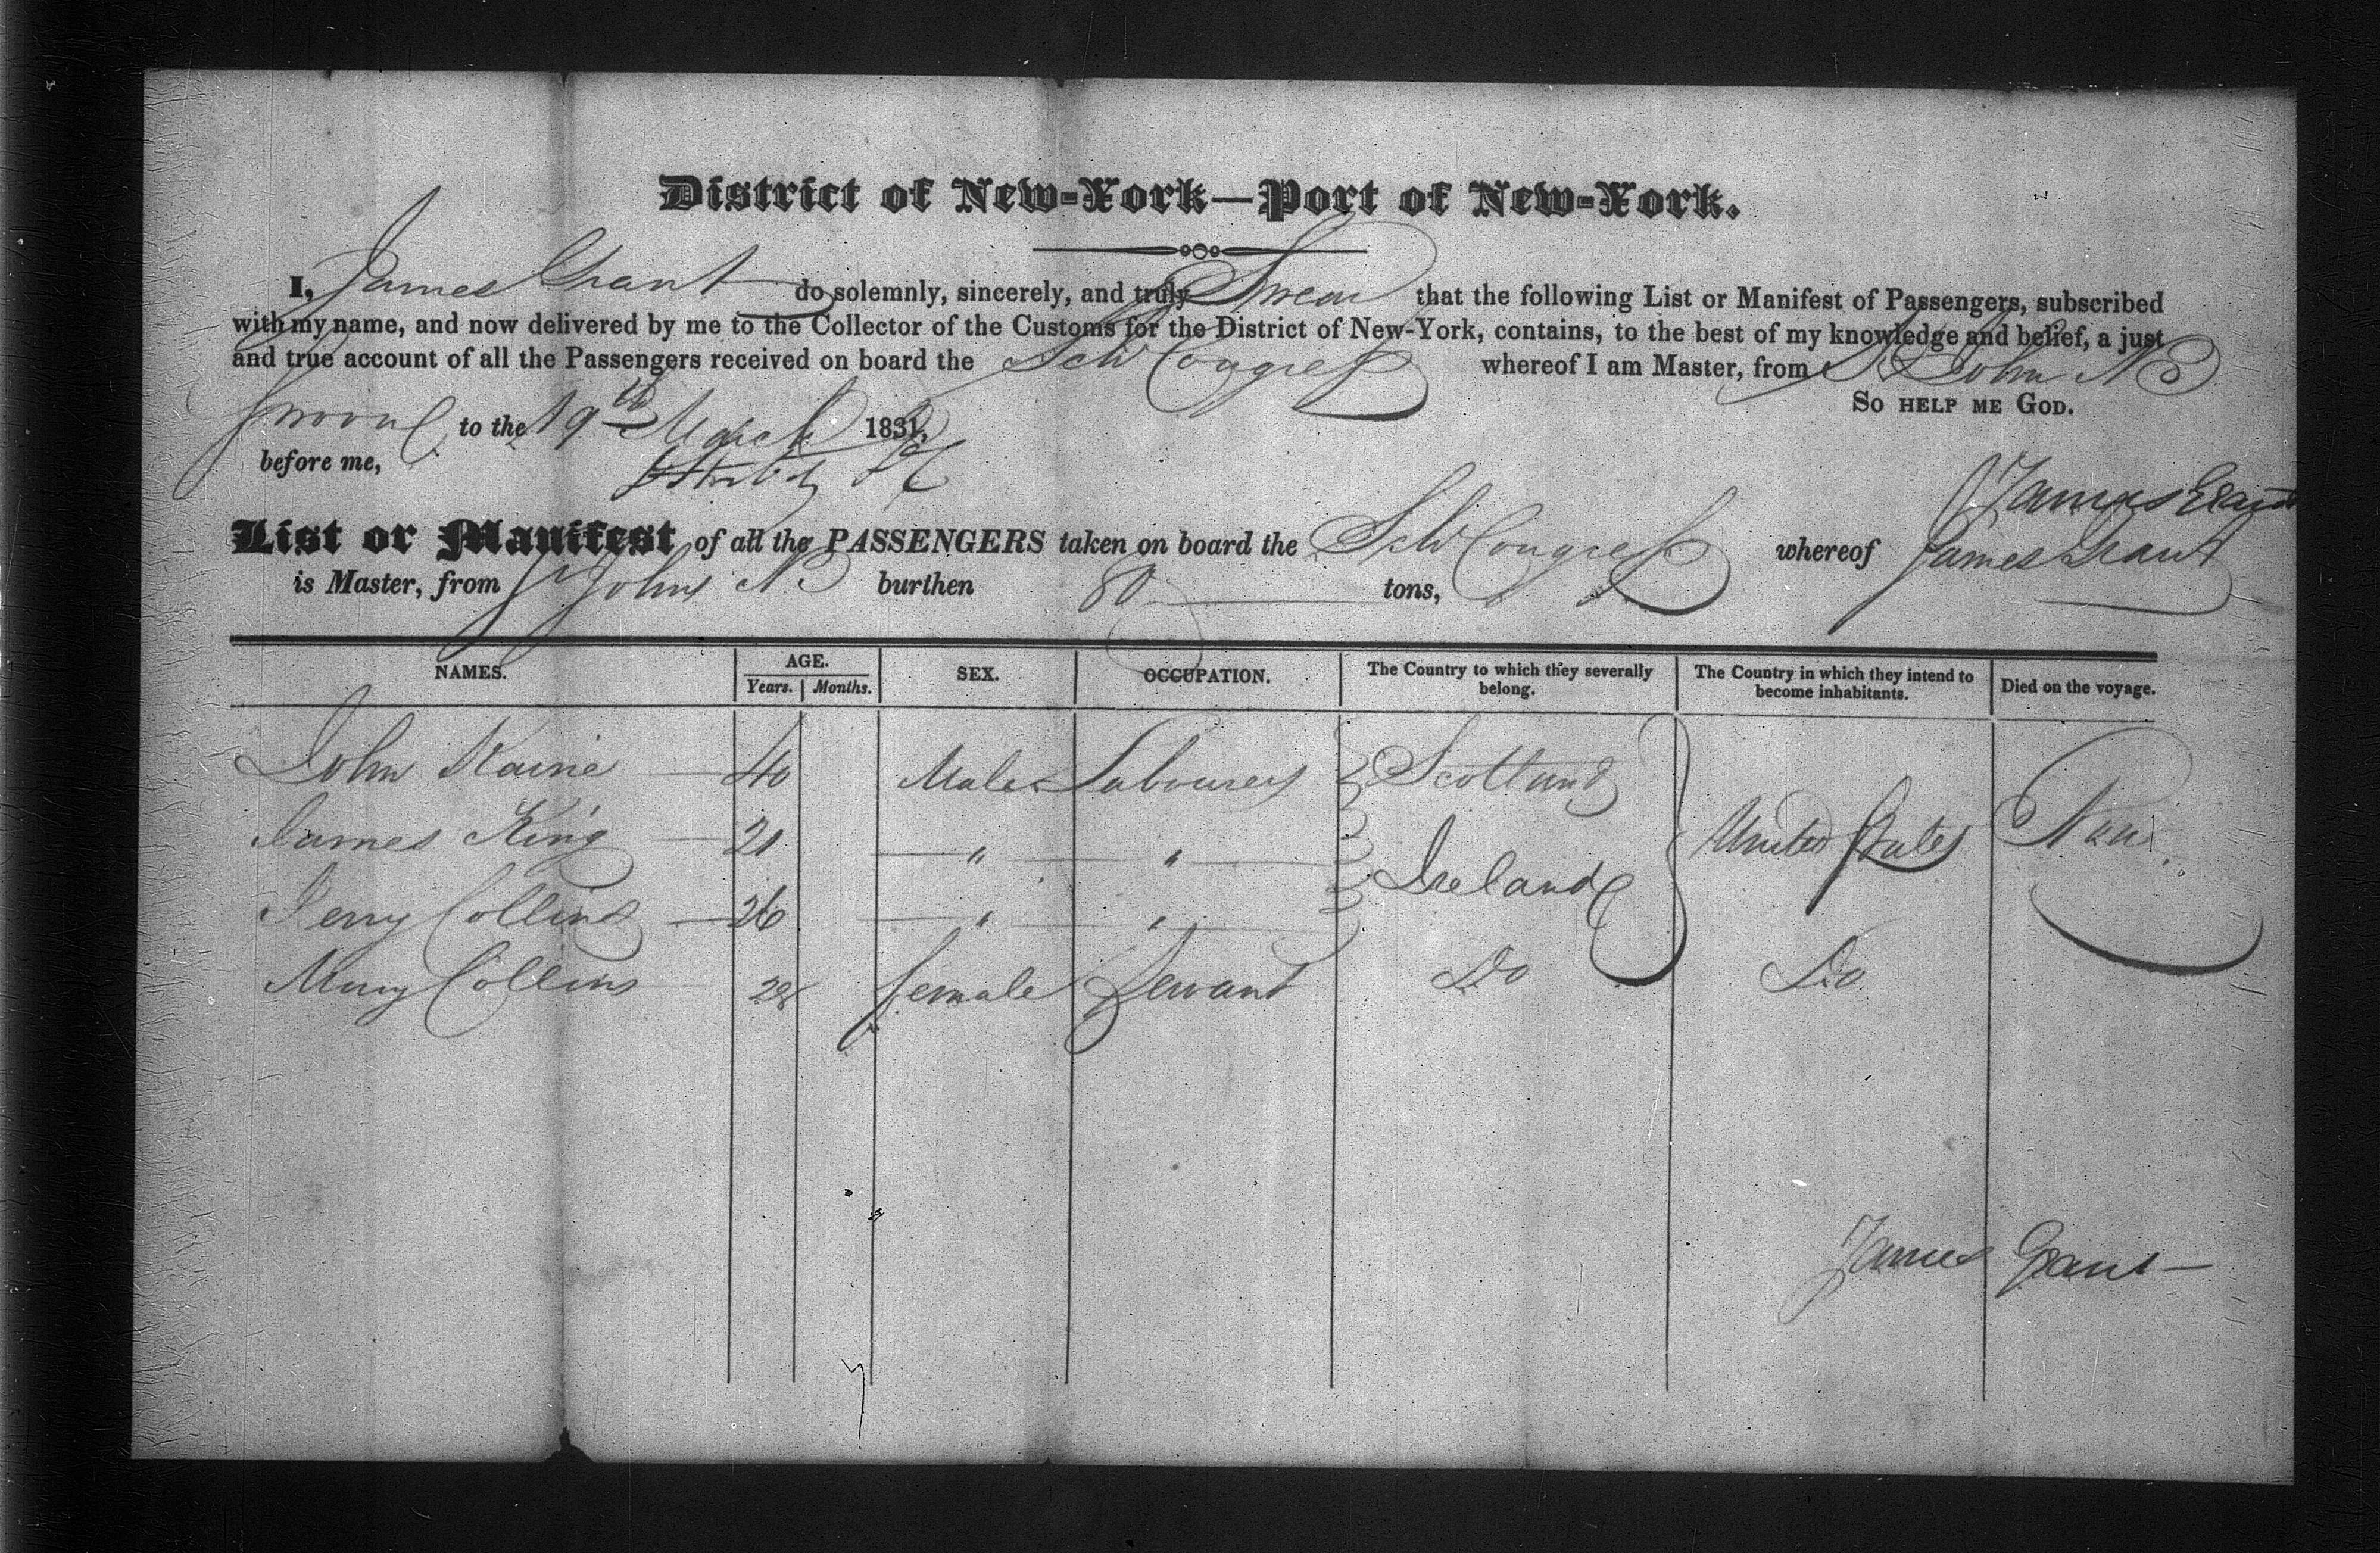 District of New-York—Port of New-York.
I, James Grant do solemnly, sincerely, and truly Swear that the following List or Manifest of Passengers, subscribed
with my name, and now delivered by me to the Collector of the Customs for the District of New-York, contains, to the best of my knowledge and belief, a just
and true account of all the Passengers received on board the Schr Congress whereof I am Master, from St John NB
So help me God.
Sworn to the 19th March 1831.
before me,
James Grant
List or Manifest of all the PASSENGERS taken on board the Schr Congress whereof James Grant
is Master, from St Johns NB burthen 80 tons,
NAMES. AGE. SEX. OCCUPATION. The Country to which they severally belong. The Country in which they intend to become inhabitants. Died on the voyage.
Years. Months.
John Kaine 40 Male Labourers Scotland
James King 21 " " Ireland United States None
Jerry Collins 26 " "
Mary Collins 28 female Servant Do Do
James Grant